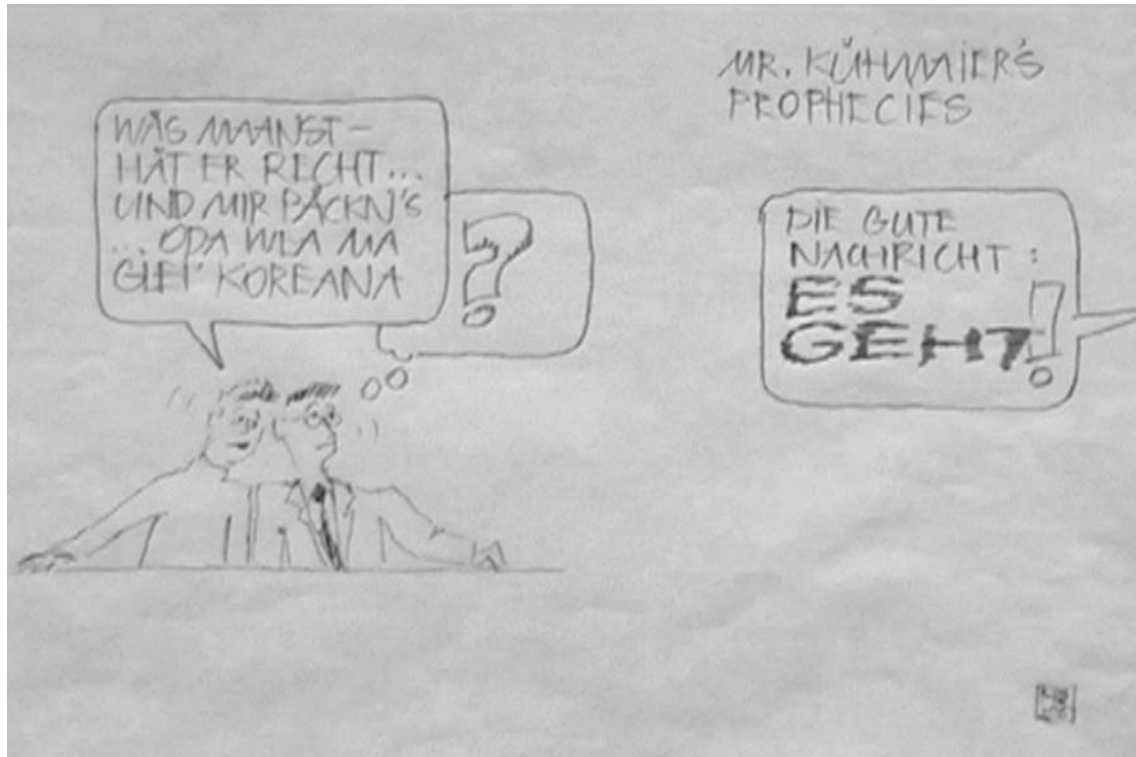 MR. KÜHMAIER'S
PROPHECIES
WÅS MAANST –
HÅT ER RECHT...
UND MIR PÅCKN'S
... ODA WEA MA
GLEI' KOREANA
?
DIE GUTE
NACHRICHT :
ES
GEHT!